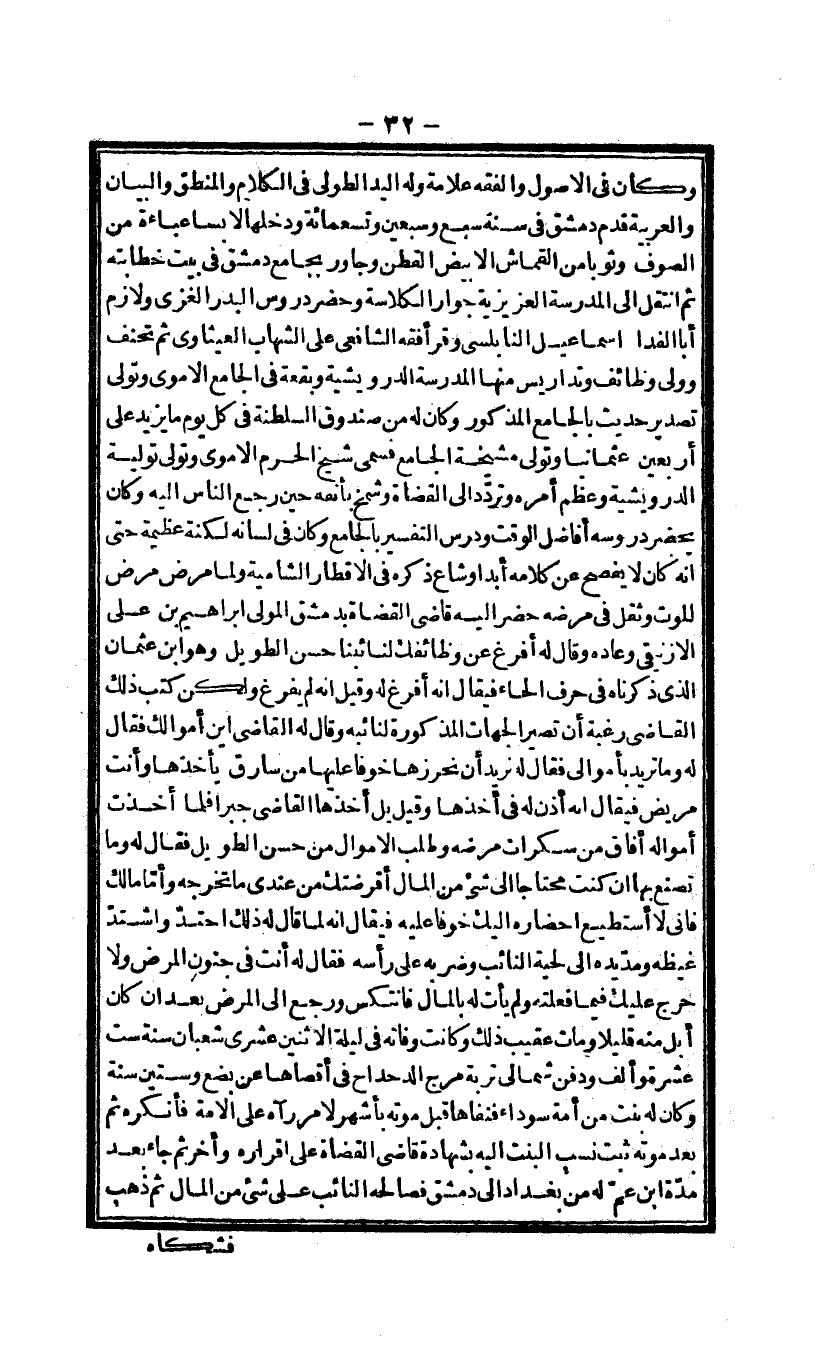 - ٣٢ -
وكان فى الاصول والفقه علامة وله اليد الطولى فى الكلام والمنطق والبيان
والعربية قدم دمشق فى سنة سبع وسبعين وتسعمائة ودخلها لابسا عباءة من
الصوف وثوبا من القماش الابيض القطن وجاور بجامع دمشق فى بيت خطابته
ثم انتقل الى المدرسة العزيزية جوار الكلاسة وحضر دروس البدر الغزى ولازم
أبا الفدا اسماعيل النابلسى وقرأ فقه الشافعى على الشهاب العيثاوى ثم تحنف
وولى وظائف وتداريس منها المدرسة الدرويشية وبقعة فى الجامع الاموى وتولى
تصدير حديث بالجامع المذكور وكان له من صندوق السلطنة فى كل يوم ما يزيد على
أربعين عثمانيا وتولى مشيخة الجامع فسمى شيخ الحرم الاموى وتولى تولية
الدرويشية وعظم أمره وتردّد الى القضاة وشمخ بأنفه حين رجع الناس اليه وكان
يحضر دروسه أفاضل الوقت ودرس التفسير بالجامع وكان فى لسانه لكنة عظيمة حتى
انه كان لا يفصح عن كلامه أبدا وشاع ذكره فى الاقطار الشامية ولما مرض مرض
الموت وثقل فى مرضه حضر اليه قاضى القضاة بدمشق المولى ابراهيم بن على
الازنيقى وعاده وقال له أفرغ عن وظائفك لنائبنا حسن الطويل وهو ابن عثمان
الذى ذكرناه فى حرف الحاء فيقال انه أفرغ له وقيل انه لم يفرغ ولكن كتب ذلك
القاضى رغبة أن تصير الجهات المذكورة لنائبه وقال له القاضى اين أموالك فقال
له وما تريد بأموالى فقال له نريد أن نحرزها خوفا عليها من سارق يأخذها وأنت
مريض فيقال انه أذن له فى أخذها وقيل بل أخذها القاضى جبرا فلما أخذت
أمواله أفاق من سكرات مرضه وطلب الاموال من حسن الطويل فقال له وما
تصنع بها ان كنت محتاجا الى شئ من المال أقرضتك من عندى ما تخرجه وأمّا مالك
فانى لا أستطيع احضاره اليك خوفا عليه فيقال انه لما قال له ذلك احتدّ واشتدّ
غيظه ومدّ يده الى لحية النائب وضربه على رأسه فقال له أنت فى جنون المرض ولا
حرج عليك فيما فعلته ولم يأت له بالمال فانتكس ورجع الى المرض بعد ان كان
أبل منه قليلا ومات عقيب ذلك وكانت وفاته فى ليلة الاثنين عشرى شعبان سنة ست
عشرة وألف ودفن شمالى تربة مرج الدحداح فى أقصاها عن بضع وستين سنة
وكان له بنت من أمة سوداء فنفاها قبل موته بأشهر لامر رآه على الامة فأنكره ثم
بعد موته ثبت نسب البنت اليه بشهادة قاضى القضاة على اقراره وأخر ثم جاء بعد
مدّة ابن عمّ له من بغداد الى دمشق فصالحه النائب على شئ من المال ثم ذهب
فشكاه